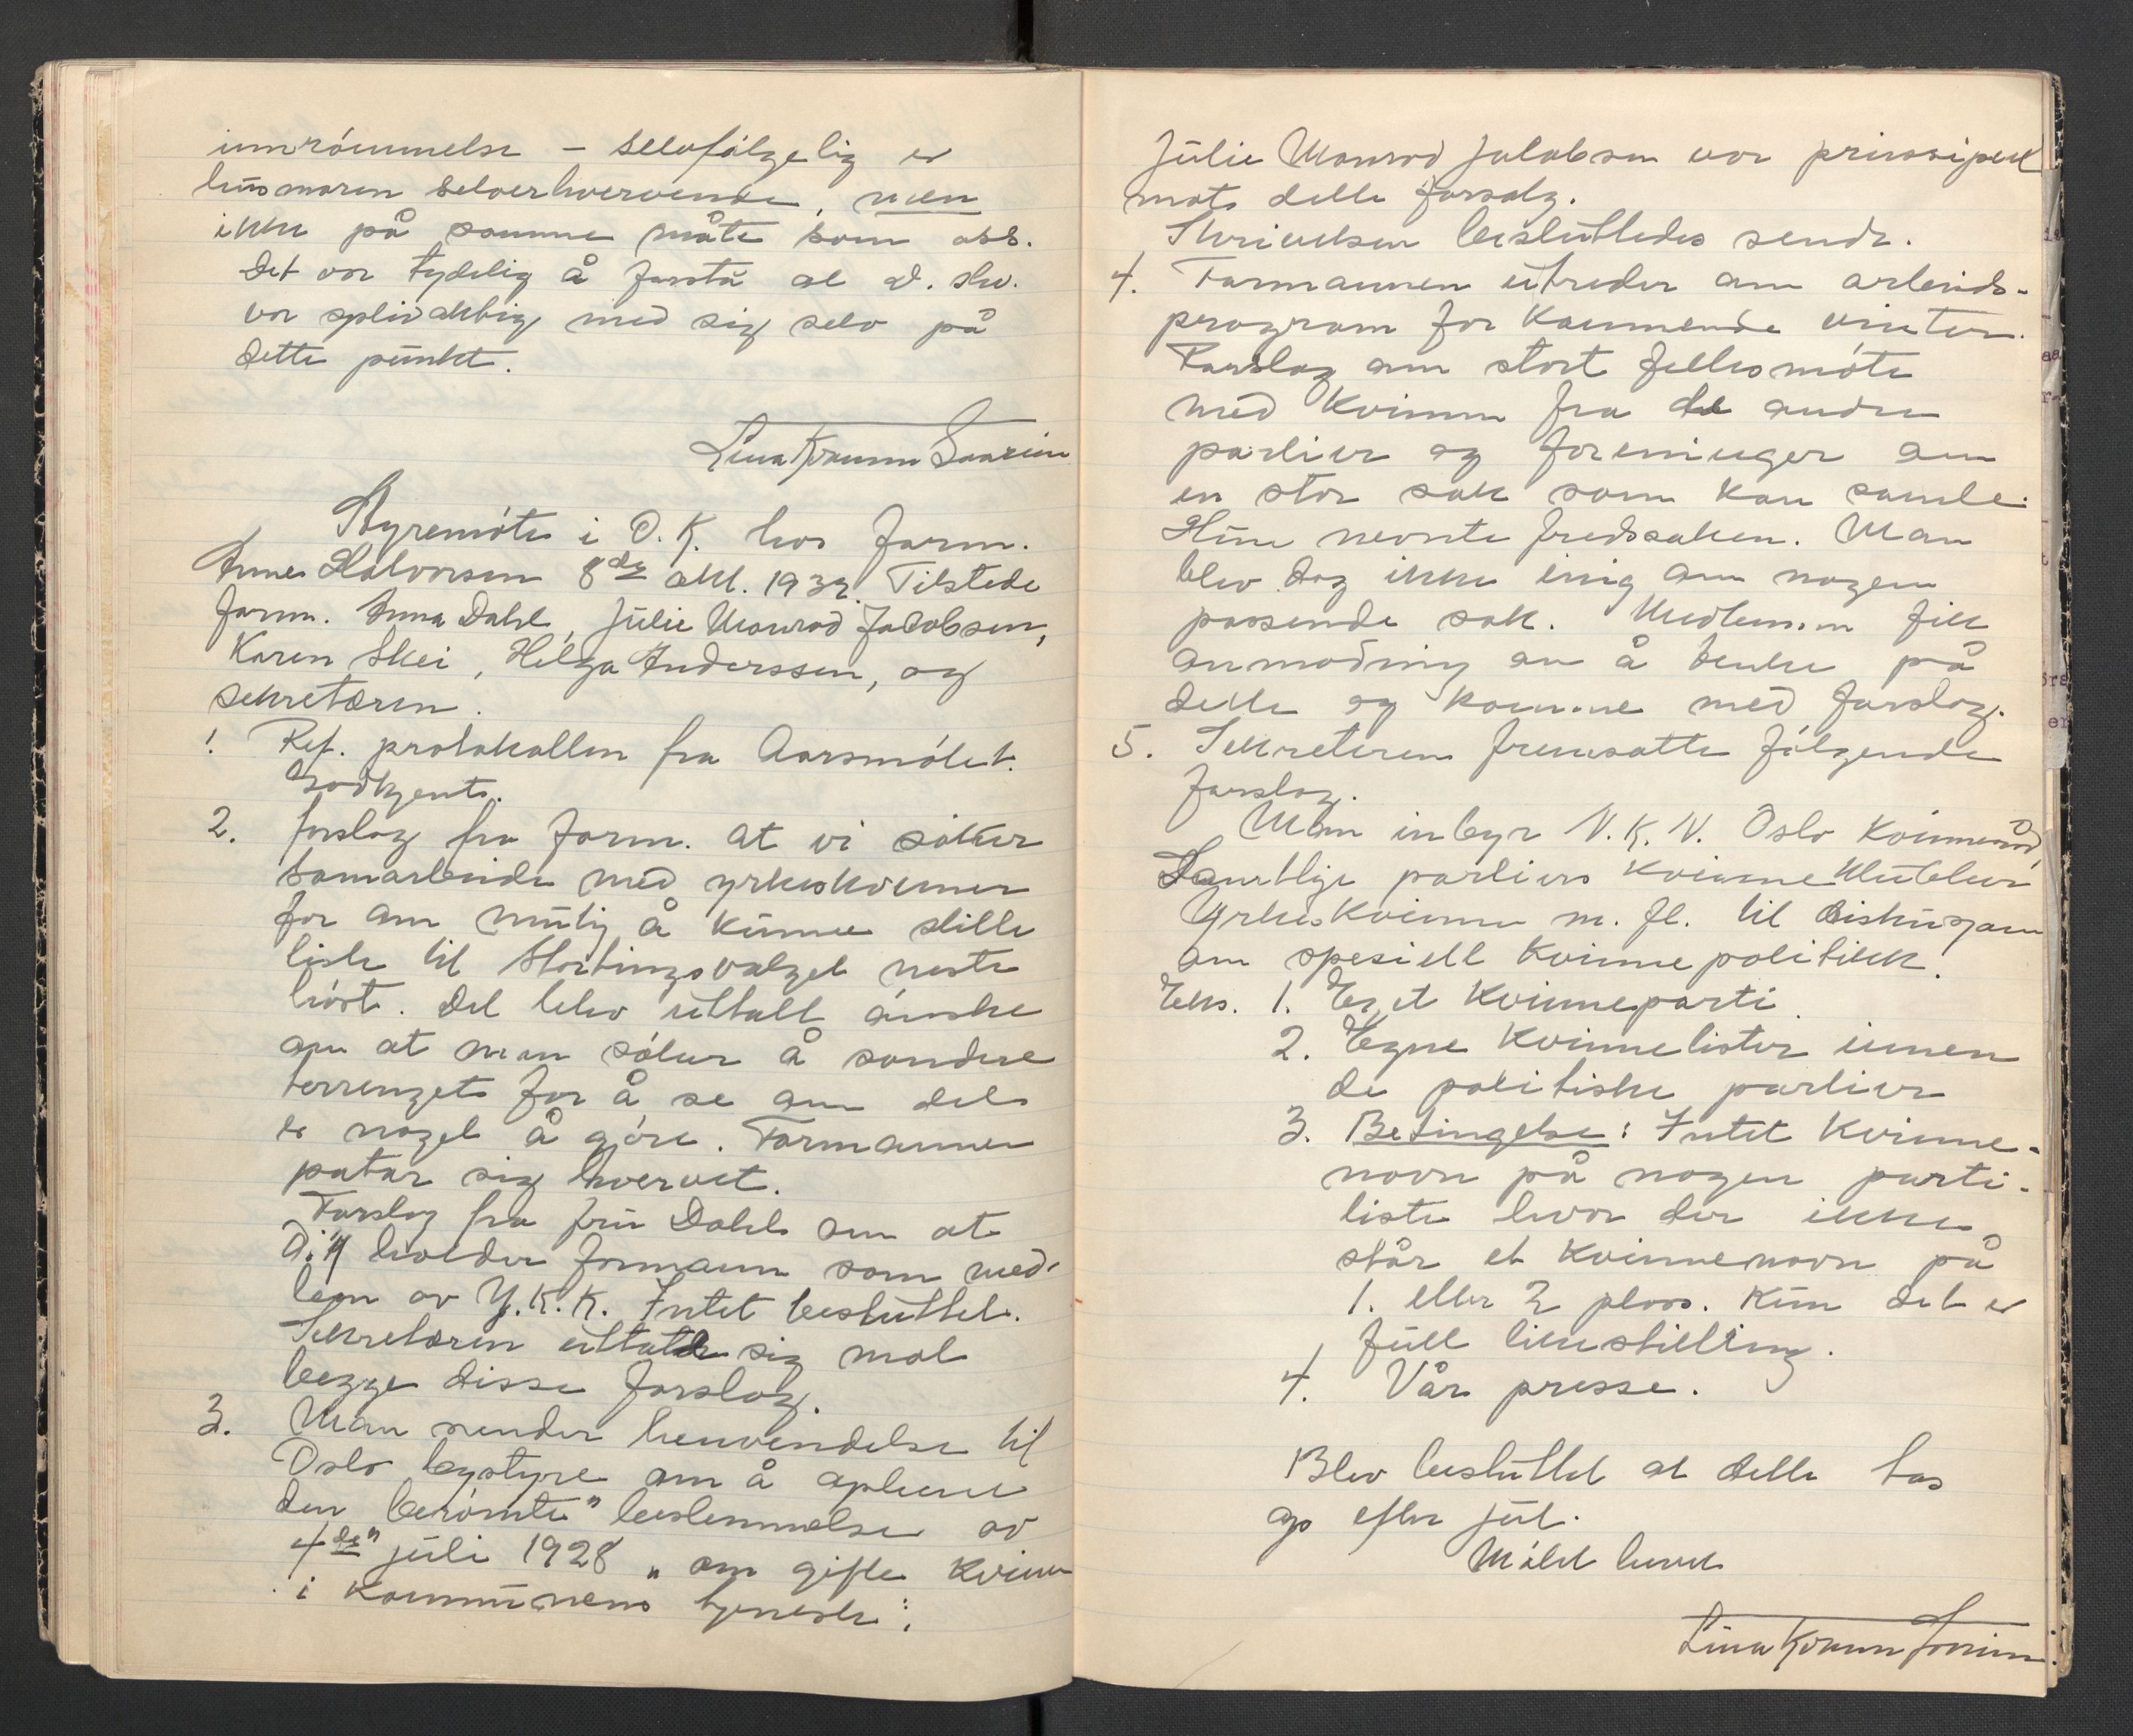 innrömmelse – selvfölgelig er
husmoren selverhvervende, men
ikke på samme måte som abs.
Det var tydelig å forstå at d. skr.
var splidaktig med sig selv på
dette punkt.
Lina Kvamm
Styremöte i O. K. hos form.
Anne Halvorsen 8de okt. 1932. Tilstede
form. Anna Dahl, Julie Monrad Jakobsen,
Karen Skei, Helga Anderssen, og
sekretæren.
1. Ref. protokollen fra Aarsmötet.
Godkjent.
2. forslag fra form. at vi söker
samarbeide med yrkeskvinner
for om mulig å kunne stille
liste til Stortingsvalget neste
höst. Det blev uttalt önske
om at man söker å sondere
terrenget for å se om det
er noget å gjöre. Formannen
patar sig hvervet.
Forslag fra fru Dahl om at
O. K holder formann som med-
lem av Y. K. K. Intet besluttet.
Sekretæren uttalte sig mot
begge disse forslag.
3. Man sender henvendelse til
Oslo bystyre om å opheve
den berömte" bestemmelse av
4de" juli 1928 „ om gifte kvinner
i kommunens tjeneste".
Julie Monrad Jakobsen var prinsipiell
mots dette forsalg.
Skrivelsen besluttedes sendt.
4. Formannen utreder om arbeids-
program for kommende vinter.
Forslag om stort fellesmöte
med kvinner fra de andre
partier og foreninger om
en stor sak som kan samle.
Hun nevnte fredssaken. Man
blev dog ikke enig om nogen
passende sak. Medlemmene fikk
anmodning om å tenke på
dette og komme med forslag.
5. Sekretæren fremsatte fölgende
forslag.
Man inbyr N. K. N. Oslo Kvinneråd,
Samtlige partiers kvinneklubber
Yrkeskvinner m. fl. til diskusjon
om spesiell kvinnepolitikk.
Eks. 1. Er et kvinneparti
2. Egne kvinnelister innen
de politiske partier
3. Betingelse: Intet kvinne-
navn på nogen parti-
liste hvor der ikke
står et kvinnenavn på
1. eller 2 plass. Kun det er
full likestilling.
4. Vår presse.
Blev besluttet at dette tas
op efter jul.
Mötet hevet
Lina Kvamm